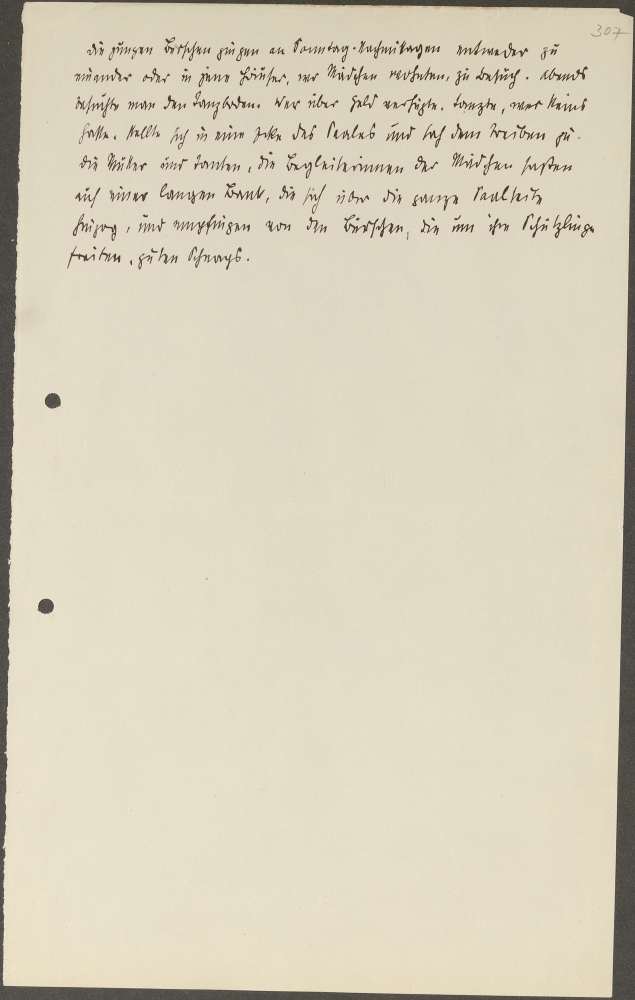 307
Die jungen Burschen gingen an Sonntag-Nachmittagen entweder zu
einander oder in jene Häuser, wo Mädchen wohnten, zu Besuch. Abends
besuchte man den Tanzboden. Wer über Geld verfügte, tanzte, wer keins
hatte, stellte sich in eine Ecke des Saales und sah dem Treiben zu.
Die Mütter und Tanten, die Begleiterinnen der Mädchen saßen
auf einer langen Bank, die sich über die ganze Saalseite
hinzog, und empfingen von den Burschen, die um ihre Schützlinge
freiten, guten Schnaps.